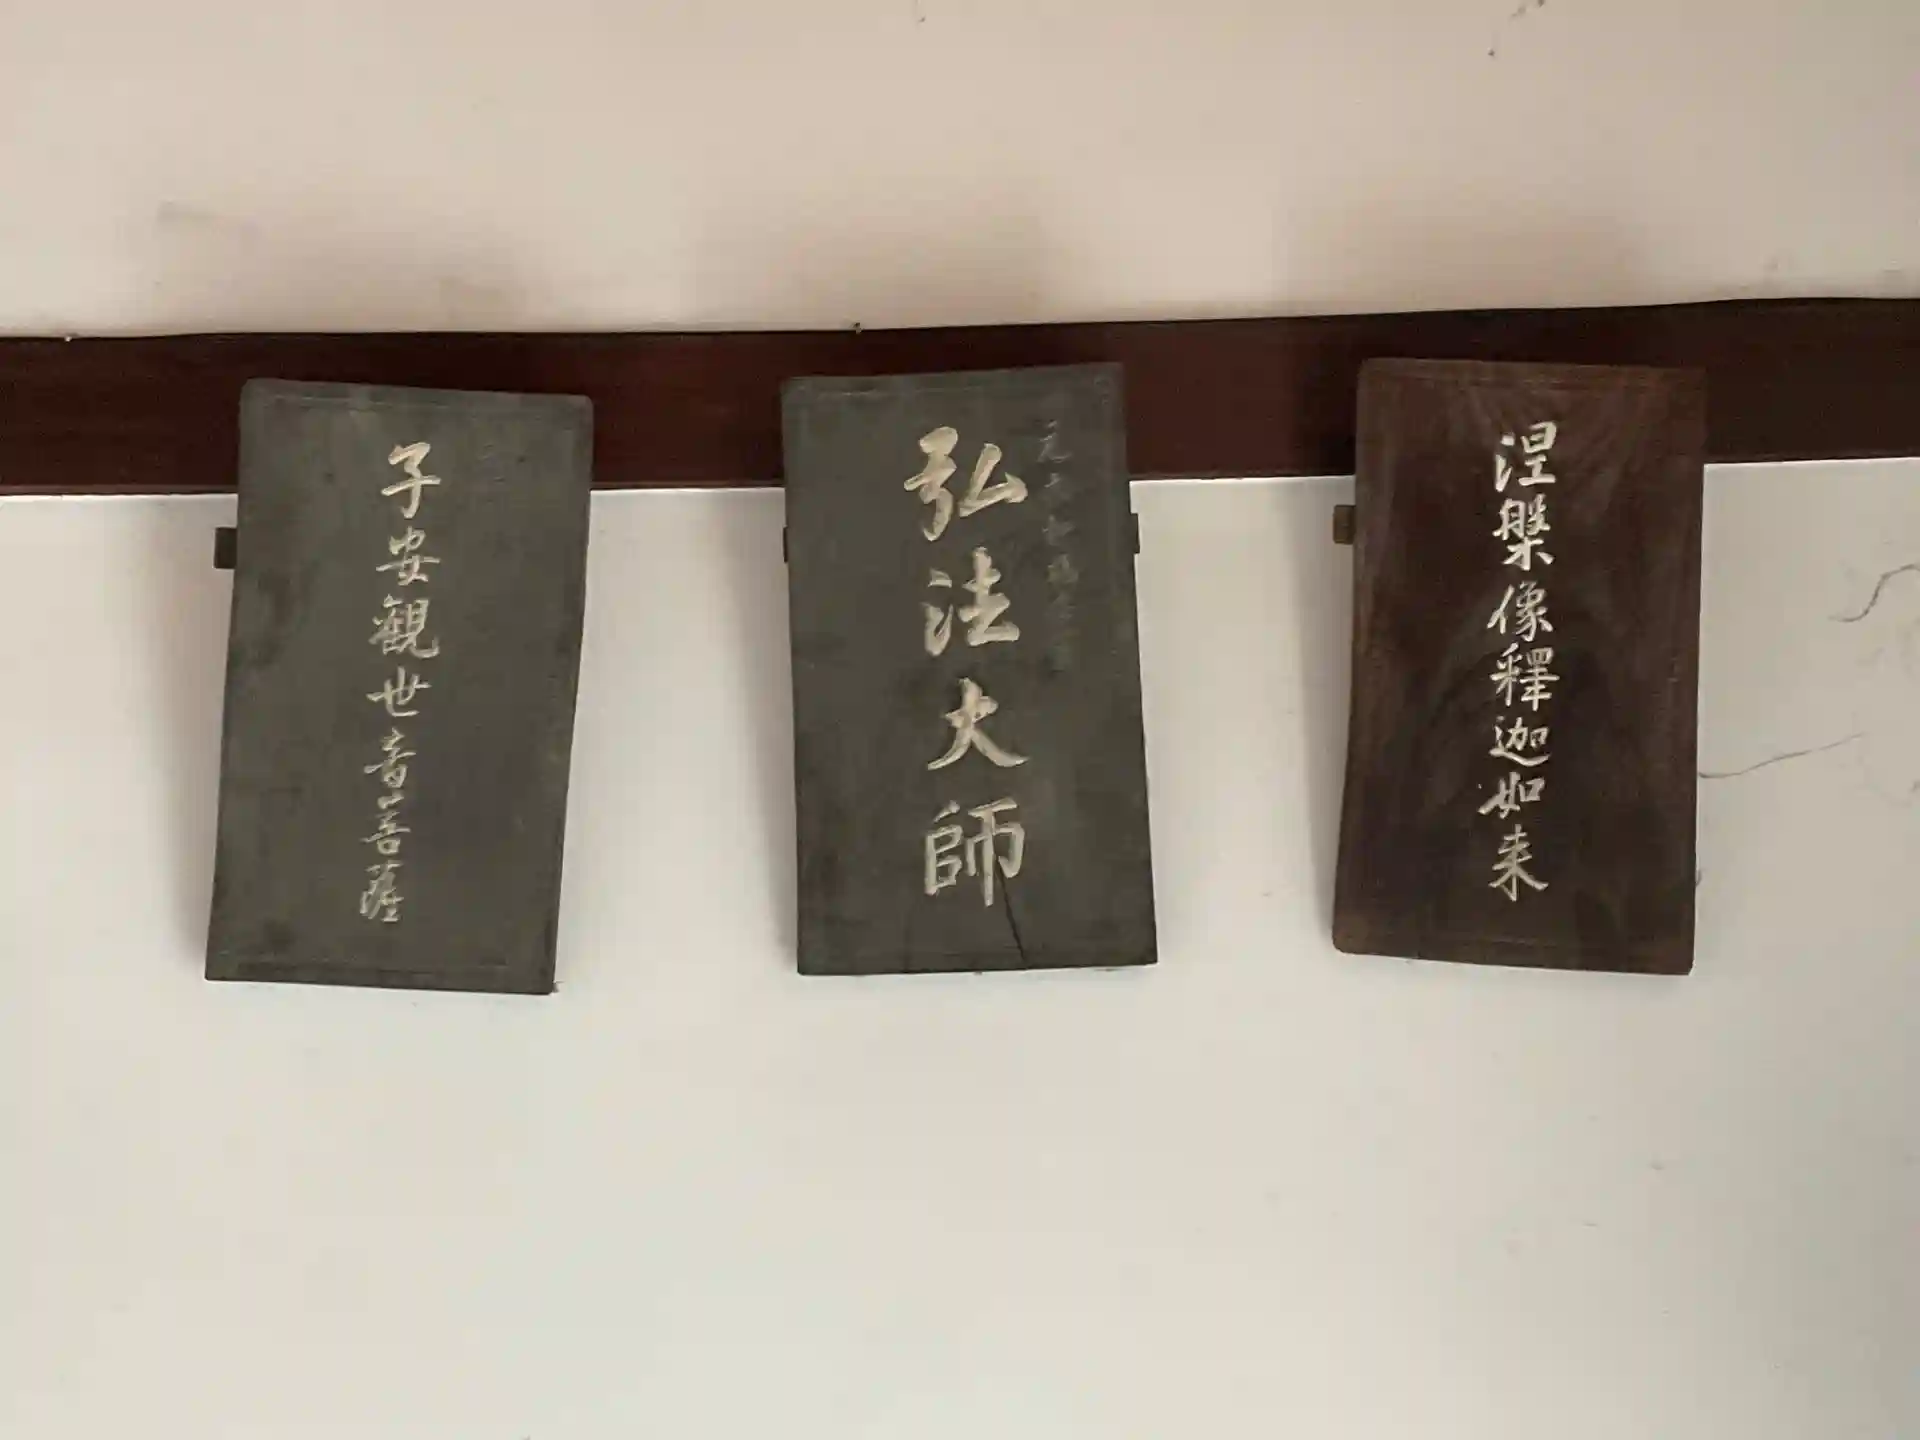 涅槃像釋迦如来
弘法大師
子安觀世音菩薩